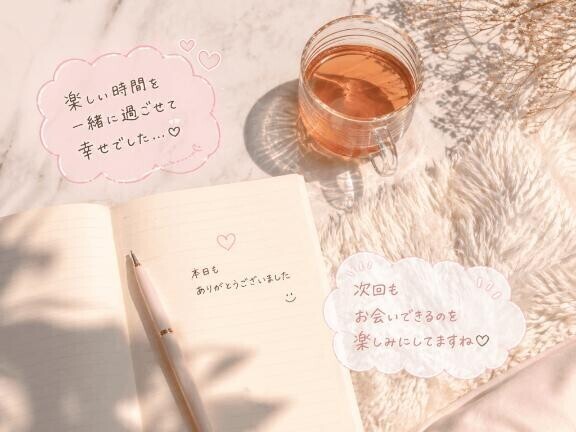 楽しい時間を
一緒に過ごせて
幸せでした...♡
本日も
ありがとうございました
次回も
お会いできるのを
楽しみにしてますね♡